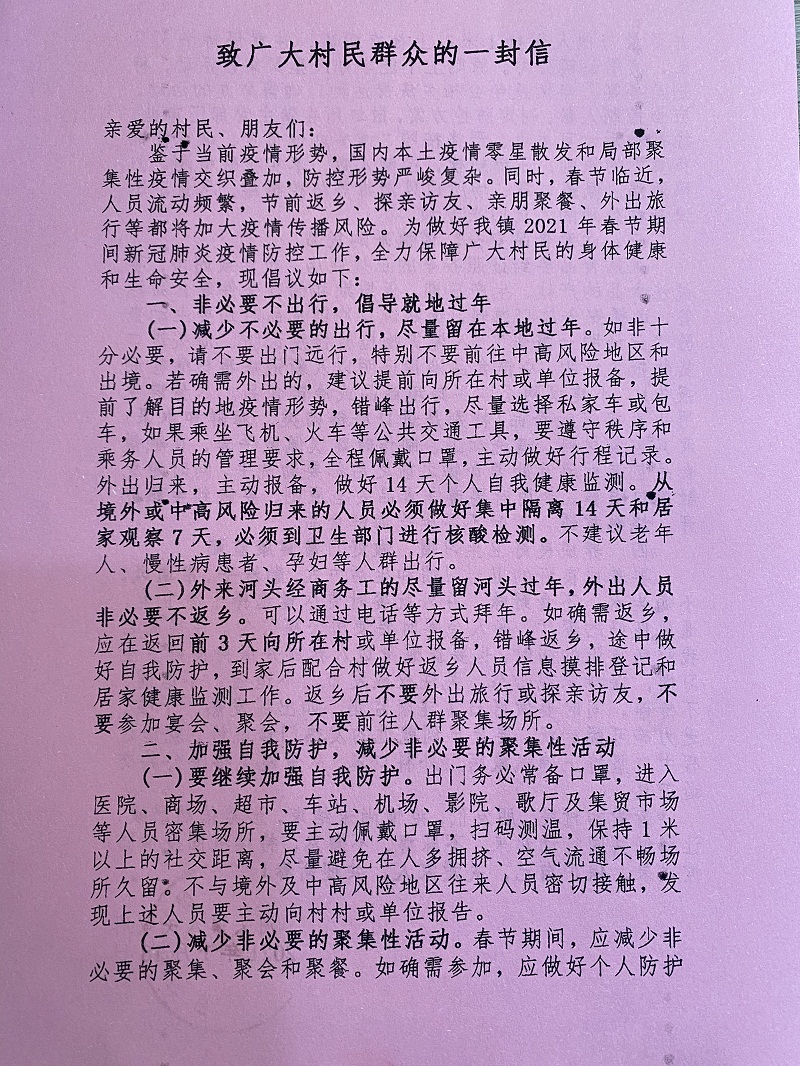 致广大村民群众的一封信
亲爱的村民、朋友们：
鉴于当前疫情形势，国内本土疫情零星散发和局部聚
集性疫情交织叠加，防控形势严峻复杂。同时，春节临近，
人员流动频繁，节前返乡、探亲访友、亲朋聚餐、外出旅
行等都将加大疫情传播风险。为做好我镇 2021 年春节期
间新冠肺炎疫情防控工作，全力保障广大村民的身体健康
和生命安全，现倡议如下：
一、非必要不出行，倡导就地过年
（一）减少不必要的出行，尽量留在本地过年。如非十
分必要，请不要出门远行，特别不要前往中高风险地区和
出境。若确需外出的，建议提前向所在村或单位报备，提
前了解目的地疫情形势，错峰出行，尽量选择私家车或包
车，如果乘坐飞机、火车等公共交通工具，要遵守秩序和
乘务人员的管理要求，全程佩戴口罩，主动做好行程记录。
外出归来，主动报备，做好 14 天个人自我健康监测。从
境外或中高风险归来的人员必须做好集中隔离 14 天和居
家观察 7 天，必须到卫生部门进行核酸检测。不建议老年
人、慢性病患者、孕妇等人群出行。
（二）外来河头经商务工的尽量留河头过年，外出人员
非必要不返乡。可以通过电话等方式拜年。如确需返乡，
应在返回前 3 天向所在村或单位报备，错峰返乡，途中做
好自我防护，到家后配合村做好返乡人员信息摸排登记和
居家健康监测工作。返乡后不要外出旅行或探亲访友，不
要参加宴会、聚会，不要前往人群聚集场所。
二、加强自我防护，减少非必要的聚集性活动
（一）要继续加强自我防护。出门务必常备口罩，进入
医院、商场、超市、车站、机场、影院、歌厅及集贸市场
等人员密集场所，要主动佩戴口罩，扫码测温，保持 1 米
以上的社交距离，尽量避免在人多拥挤、空气流通不畅场
所久留；不与境外及中高风险地区往来人员密切接触，发
现上述人员要主动向村村或单位报告。
（二）减少非必要的聚集性活动。春节期间，应减少非
必要的聚集、聚会和聚餐。如确需参加，应做好个人防护